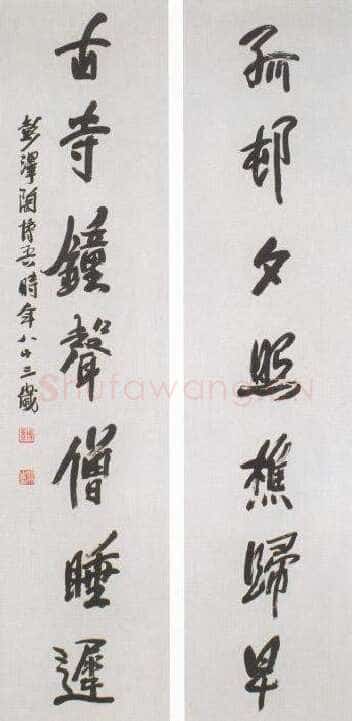 孤邨夕照樵歸早
古寺鐘聲僧睡遲
彭澤陶博吾時年八十三歲
Shufawang.CN